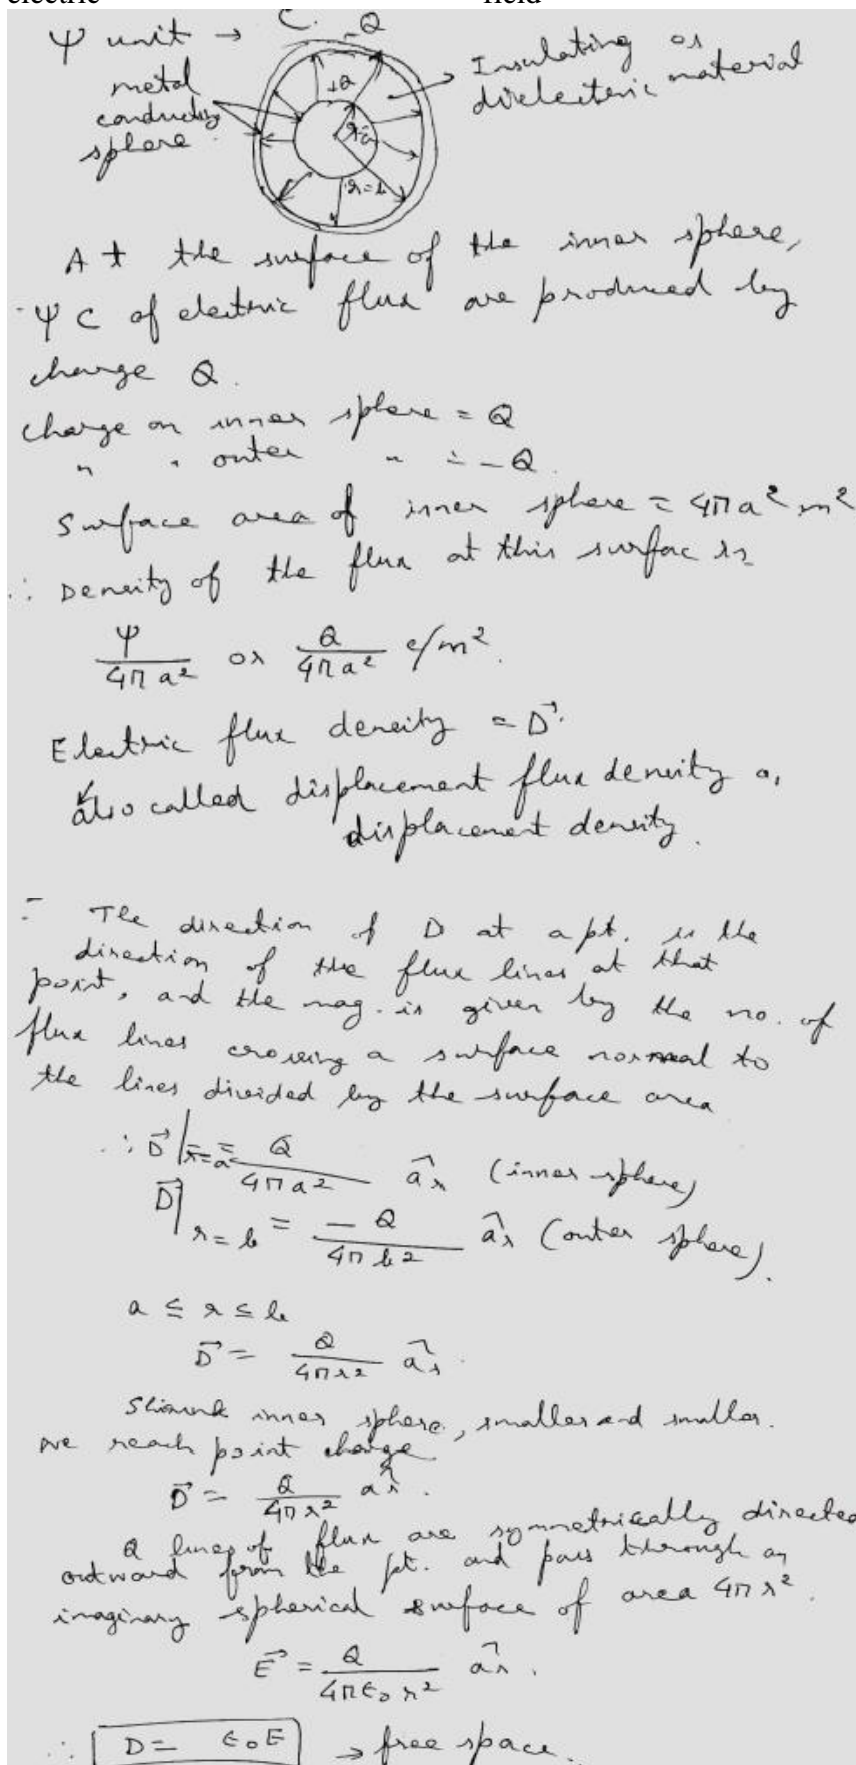 electric field
Ψ unit → C. -Q
metal
conducting
sphere.
+Q
r=a
r=b
Insulating or
dielectric material
At the surface of the inner sphere,
Ψ C of electric flux are produced by
charge Q.
Charge on inner sphere = Q
" " outer " = -Q.
Surface area of inner sphere = 4πa² m²
∴ Density of the flux at this surfac is
Ψ/4πa² or Q/4πa² c/m².
Electric flux density = D⃗.
also called displacement flux density or
displacement density.
The direction of D at a pt. is the
direction of the flux lines at that
point, and the mag. is given by the no. of
flux lines crossing a surface normal to
the lines divided by the surface area
∴ D⃗|r=a = Q/4πa² âr (inner sphere)
D⃗|r=b = -Q/4πb² âr (outer sphere).
a ≤ r ≤ b
D⃗ = Q/4πr² âr.
inner sphere, smaller and smaller.
we reach point charge
D⃗ = Q/4πr² âr.
Q lines of flux are symmetrically directed
outward from the pt. and pass through an
imaginary spherical surface of area 4πr².
E⃗ = Q/4πε₀r² âr.
∴ D = ε₀E → free space.